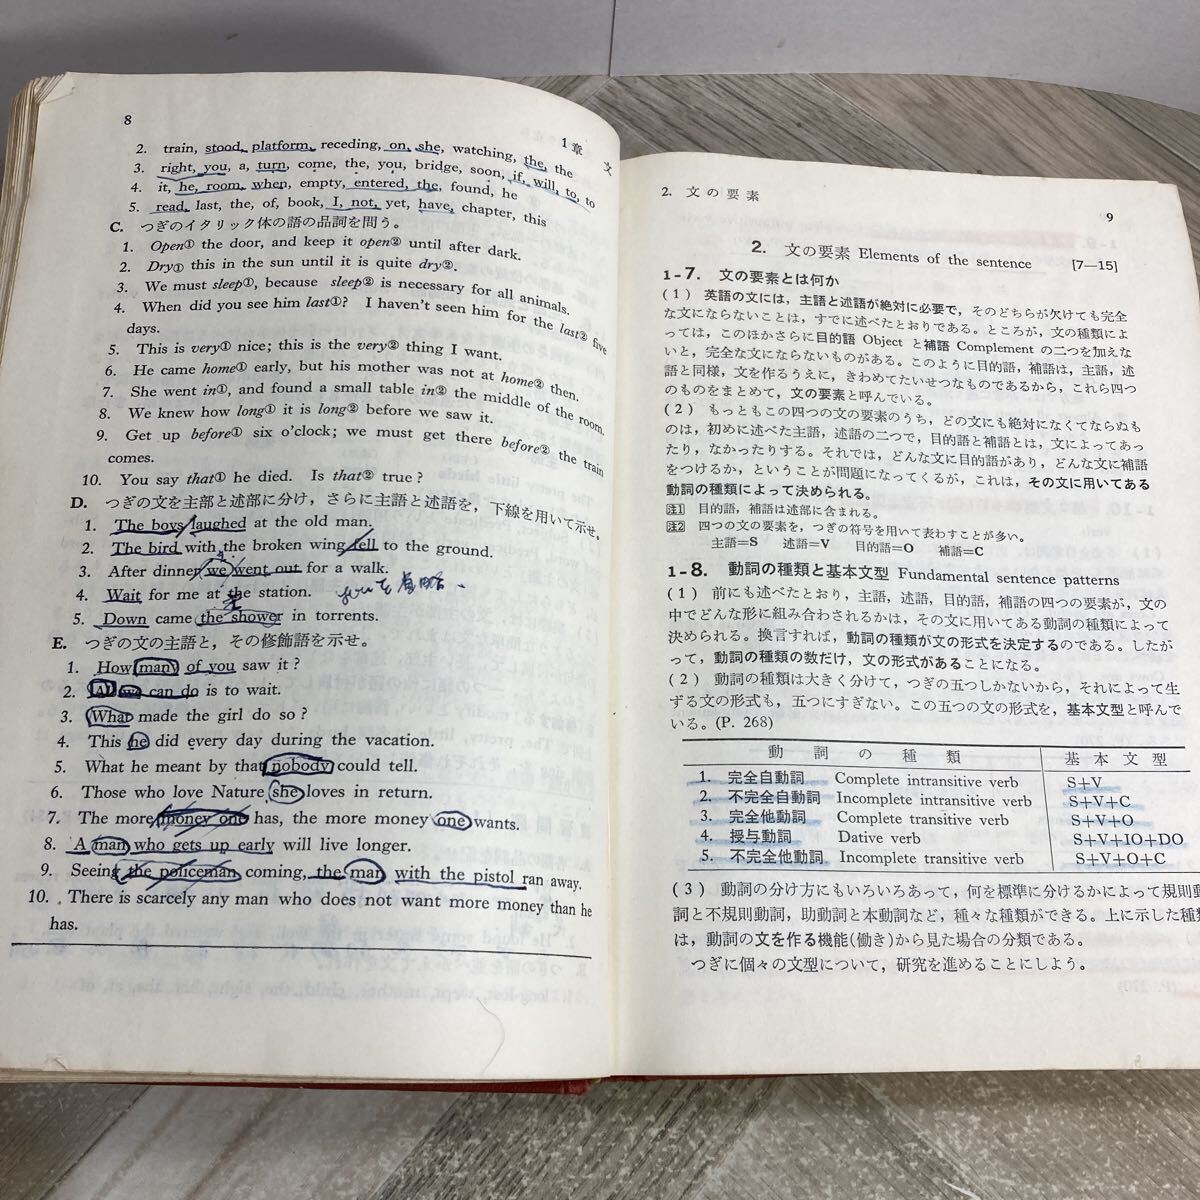 8
1章 文
2. train, stood, platform, receding, on, she, watching, the, the
3. right, you, a, turn, come, the, you, bridge, soon, if, will, to, to
4. it, he, room, when, empty, entered, the, found, he
5. read, last, the, of, book, I, not, yet, have, chapter, this
C. つぎのイタリック体の語の品詞を問う。
1. Open① the door, and keep it open② until after dark.
2. Dry① this in the sun until it is quite dry②.
3. We must sleep①, because sleep② is necessary for all animals.
4. When did you see him last①? I haven't seen him for the last② five
days.
5. This is very① nice; this is the very② thing I want.
6. He came home① early, but his mother was not at home② then.
7. She went in①, and found a small table in② the middle of the room.
8. We knew how long① it is long② before we saw it.
9. Get up before① six o'clock; we must get there before② the train
comes.
10. You say that① he died. Is that② true?
D. つぎの文を主部と述部に分け，さらに主語と述語を，下線を用いて示せ。
1. The boys laughed at the old man.
2. The bird with the broken wing fell to the ground.
3. After dinner we went out for a walk.
4. Wait for me at the station. youを省略
5. Down came the shower in torrents.
E. つぎの文の主語と，その修飾語を示せ。
1. How many of you saw it?
2. All we can do is to wait.
3. What made the girl do so?
4. This he did every day during the vacation.
5. What he meant by that nobody could tell.
6. Those who love Nature she loves in return.
7. The more money one has, the more money one wants.
8. A man who gets up early will live longer.
9. Seeing the policeman coming, the man with the pistol ran away.
10. There is scarcely any man who does not want more money than he
has.
2. 文の要素
9
2. 文の要素 Elements of the sentence [7—15]
1-7. 文の要素とは何か
(1) 英語の文には，主語と述語が絶対に必要で，そのどちらが欠けても完全
な文にならないことは，すでに述べたとおりである。ところが，文の種類によ
っては，このほかさらに目的語 Object と補語 Complement の二つを加えな
いと，完全な文にならないものがある。このように目的語，補語は，主語，述
語と同様，文を作るうえに，きわめてたいせつなものであるから，これら四つ
のものをまとめて，文の要素と呼んでいる。
(2) もっともこの四つの文の要素のうち，どの文にも絶対になくてならぬも
のは，初めに述べた主語，述語の二つで，目的語と補語とは，文によってあっ
たり，なかったりする。それでは，どんな文に目的語があり，どんな文に補語
をつけるか，ということが問題になってくるが，これは，その文に用いてある
動詞の種類によって決められる。
注1 目的語，補語は述部に含まれる。
注2 四つの文の要素を，つぎの符号を用いて表わすことが多い。
主語=S 述語=V 目的語=O 補語=C
1-8. 動詞の種類と基本文型 Fundamental sentence patterns
(1) 前にも述べたとおり，主語，述語，目的語，補語の四つの要素が，文の
中でどんな形に組み合わされるかは，その文に用いてある動詞の種類によって
決められる。換言すれば，動詞の種類が文の形式を決定するのである。したが
って，動詞の種類の数だけ，文の形式があることになる。
(2) 動詞の種類は大きく分けて，つぎの五つしかないから，それによって生
ずる文の形式も，五つにすぎない。この五つの文の形式を，基本文型と呼んで
いる。(P. 268)
動詞の種類 基本文型
1. 完全自動詞 Complete intransitive verb S+V
2. 不完全自動詞 Incomplete intransitive verb S+V+C
3. 完全他動詞 Complete transitive verb S+V+O
4. 授与動詞 Dative verb S+V+IO+DO
5. 不完全他動詞 Incomplete transitive verb S+V+O+C
(3) 動詞の分け方にもいろいろあって，何を標準に分けるかによって規則動
詞と不規則動詞，助動詞と本動詞など，種々な種類ができる。上に示した種類
は，動詞の文を作る機能(働き)から見た場合の分類である。
つぎに個々の文型について，研究を進めることにしよう。